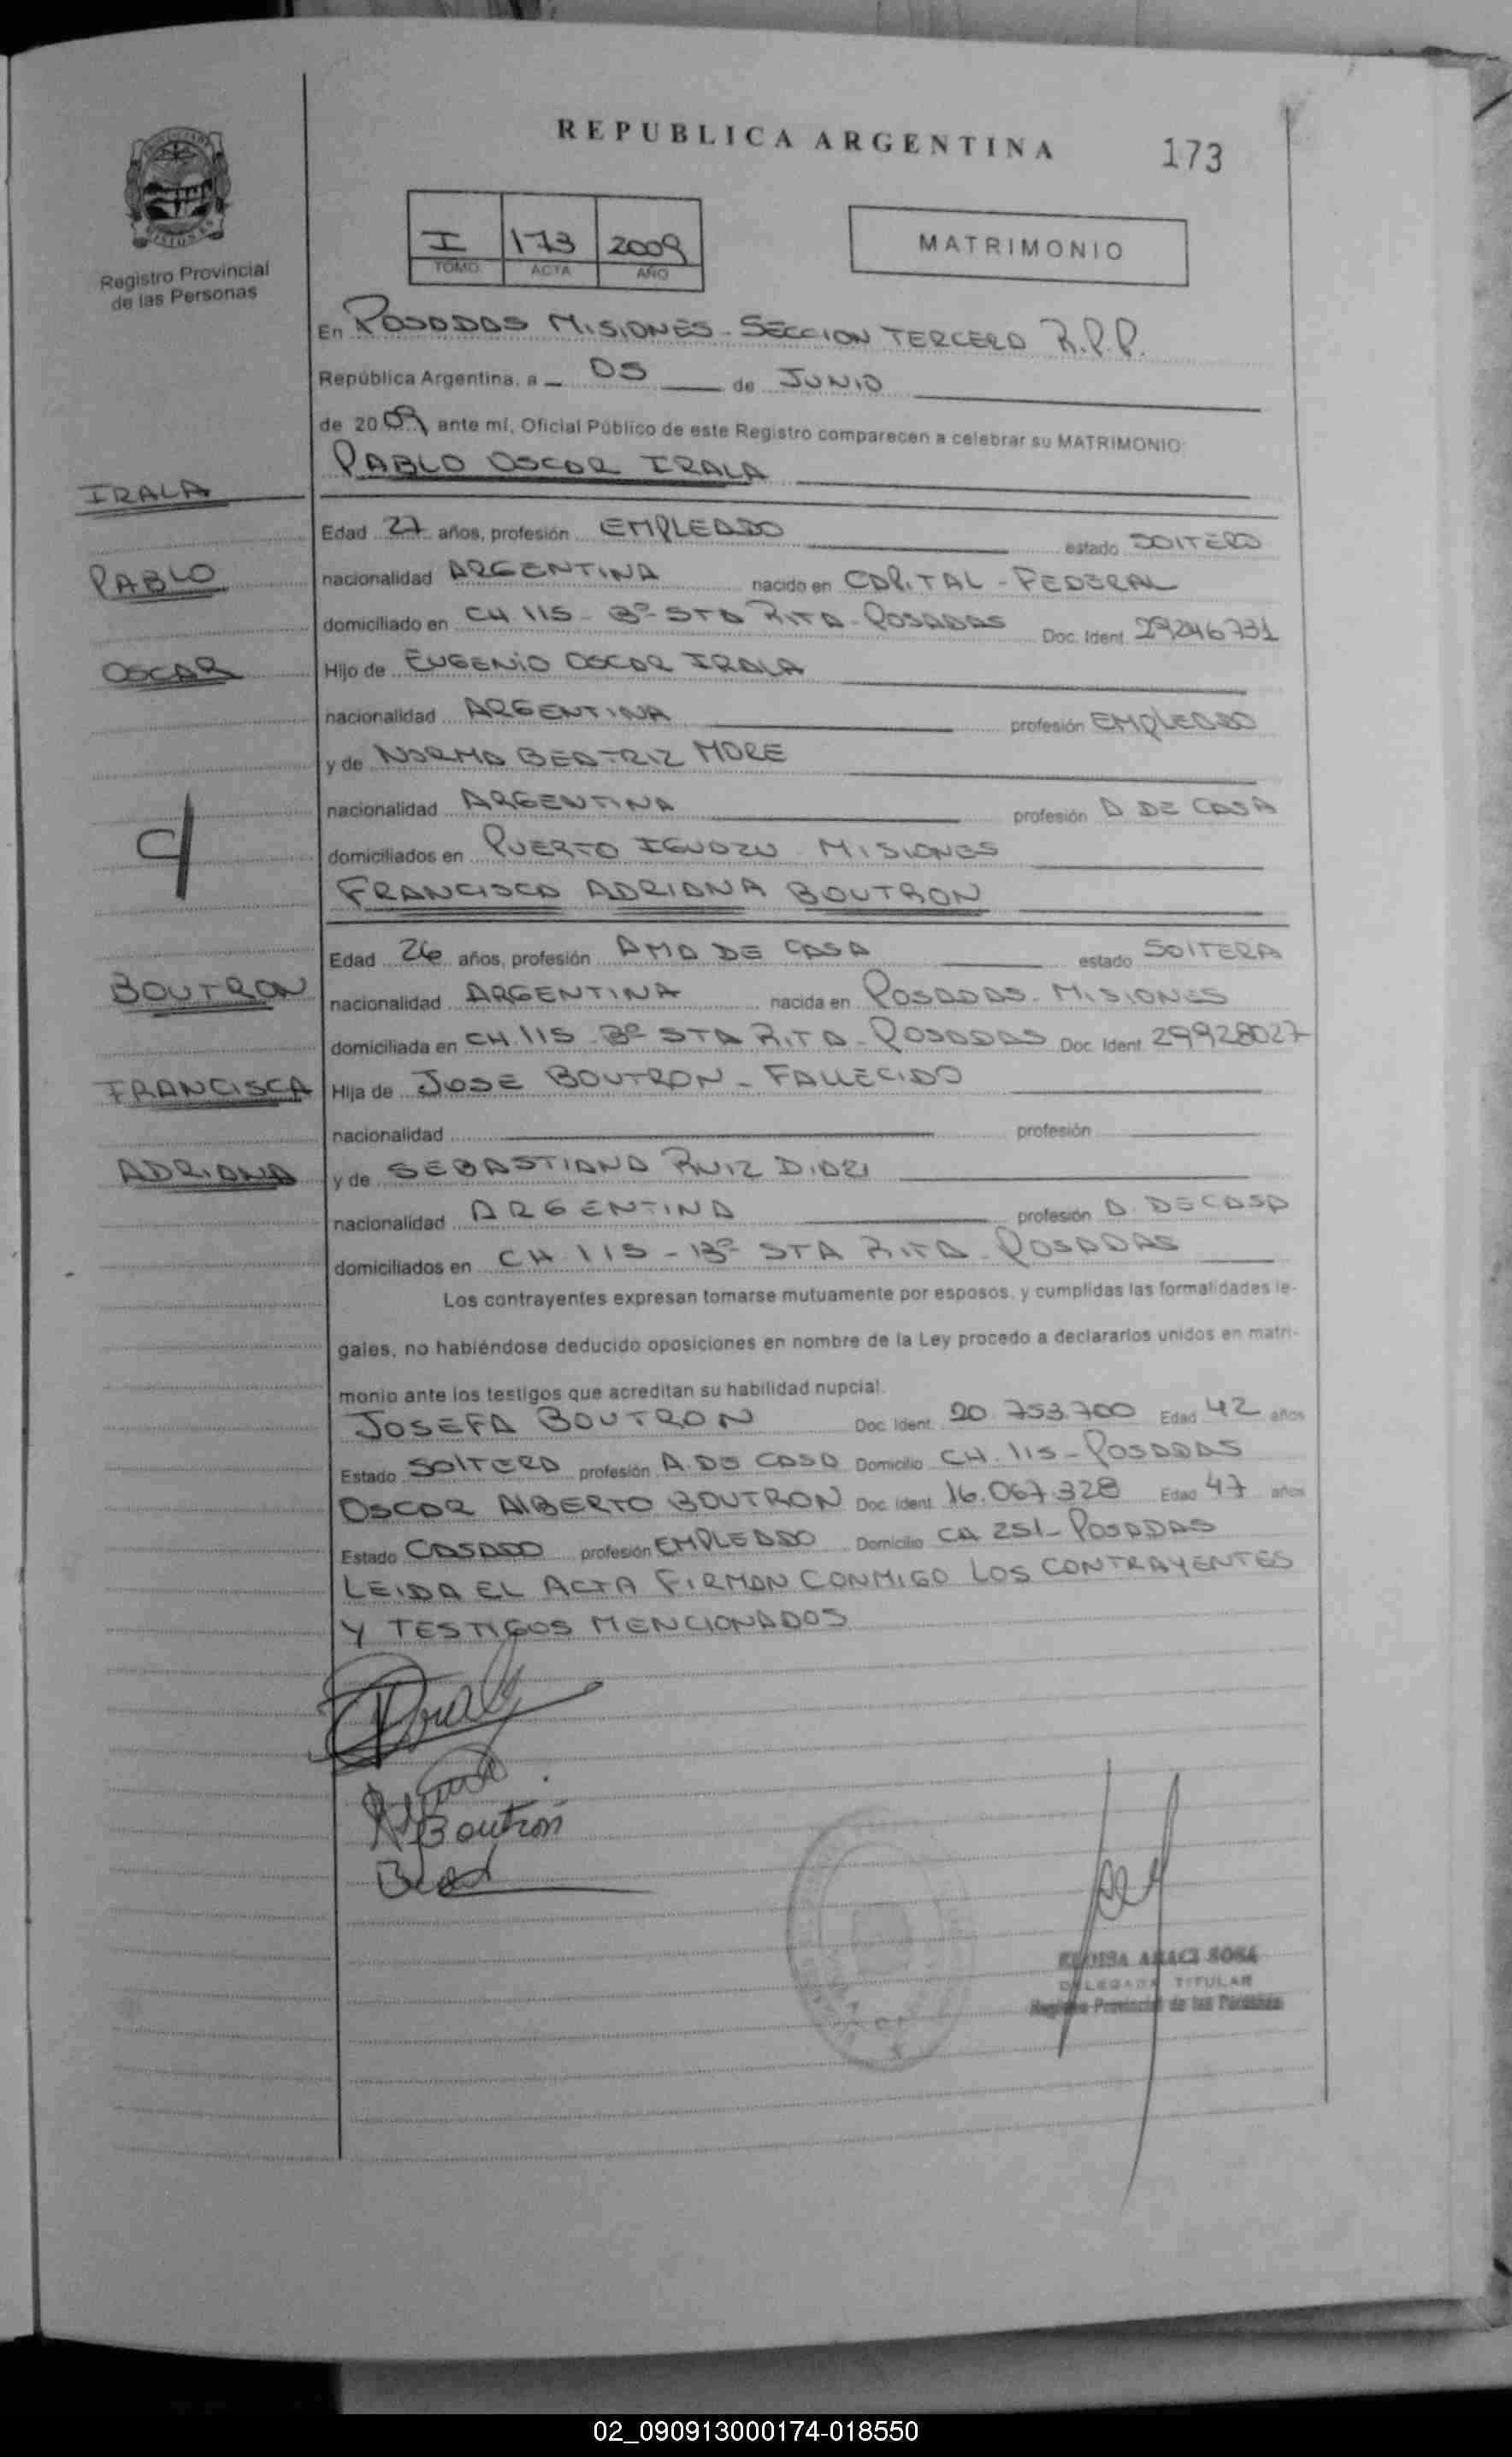 REPUBLICA ARGENTINA
173
I 173 2009
TOMO ACTA AÑO
MATRIMONIO
MISIONES
Registro Provincial
de las Personas
En POSADAS MISIONES - SECCION TERCERA R.P.P.
República Argentina, a 05 de JUNIO
de 2009 ante mí, Oficial Público de este Registro comparecen a celebrar su MATRIMONIO:
PABLO OSCAR IRALA
IRALA
Edad 27 años, profesión EMPLEADO estado SOLTERO
PABLO
nacionalidad ARGENTINA nacido en CAPITAL - FEDERAL
domiciliado en CH 115 - Bº STA RITA - POSADAS Doc. Ident. 29246731
OSCAR
Hijo de EUGENIO OSCAR IRALA
nacionalidad ARGENTINA profesión EMPLEADO
y de NORMA BEATRIZ MORE
nacionalidad ARGENTINA profesión A DE CASA
domiciliados en PUERTO IGUAZU MISIONES
FRANCISCA ADRIANA BOUTRON
Edad 26 años, profesión AMA DE CASA estado SOLTERA
BOUTRON
nacionalidad ARGENTINA nacida en POSADAS - MISIONES
domiciliada en CH. 115 - Bº STA RITA - POSADAS Doc. Ident. 29928027
FRANCISCA
Hija de JOSE BOUTRON - FALLECIDO
nacionalidad profesión
ADRIANA
y de SEBASTIANA RUIZ DIAZ
nacionalidad ARGENTINA profesión A. DE CASA
domiciliados en CH 115 - Bº STA RITA - POSADAS
Los contrayentes expresan tomarse mutuamente por esposos, y cumplidas las formalidades le-
gales, no habiéndose deducido oposiciones en nombre de la Ley procedo a declararlos unidos en matri-
monio ante los testigos que acreditan su habilidad nupcial.
JOSEFA BOUTRON Doc. Ident. 20.753.700 Edad 42 años
Estado SOLTERA profesión A. DE CASA Domicilio CH. 115 - POSADAS
OSCAR ALBERTO BOUTRON Doc. Ident. 16.067.328 Edad 47 años
Estado CASADO profesión EMPLEADO Domicilio CH 251 - POSADAS
LEIDA EL ACTA FIRMAN CONMIGO LOS CONTRAYENTES
Y TESTIGOS MENCIONADOS
Boutrón
ARACI SOSA
DELEGADA TITULAR
Registro Provincial de las Personas
02_090913000174-018550